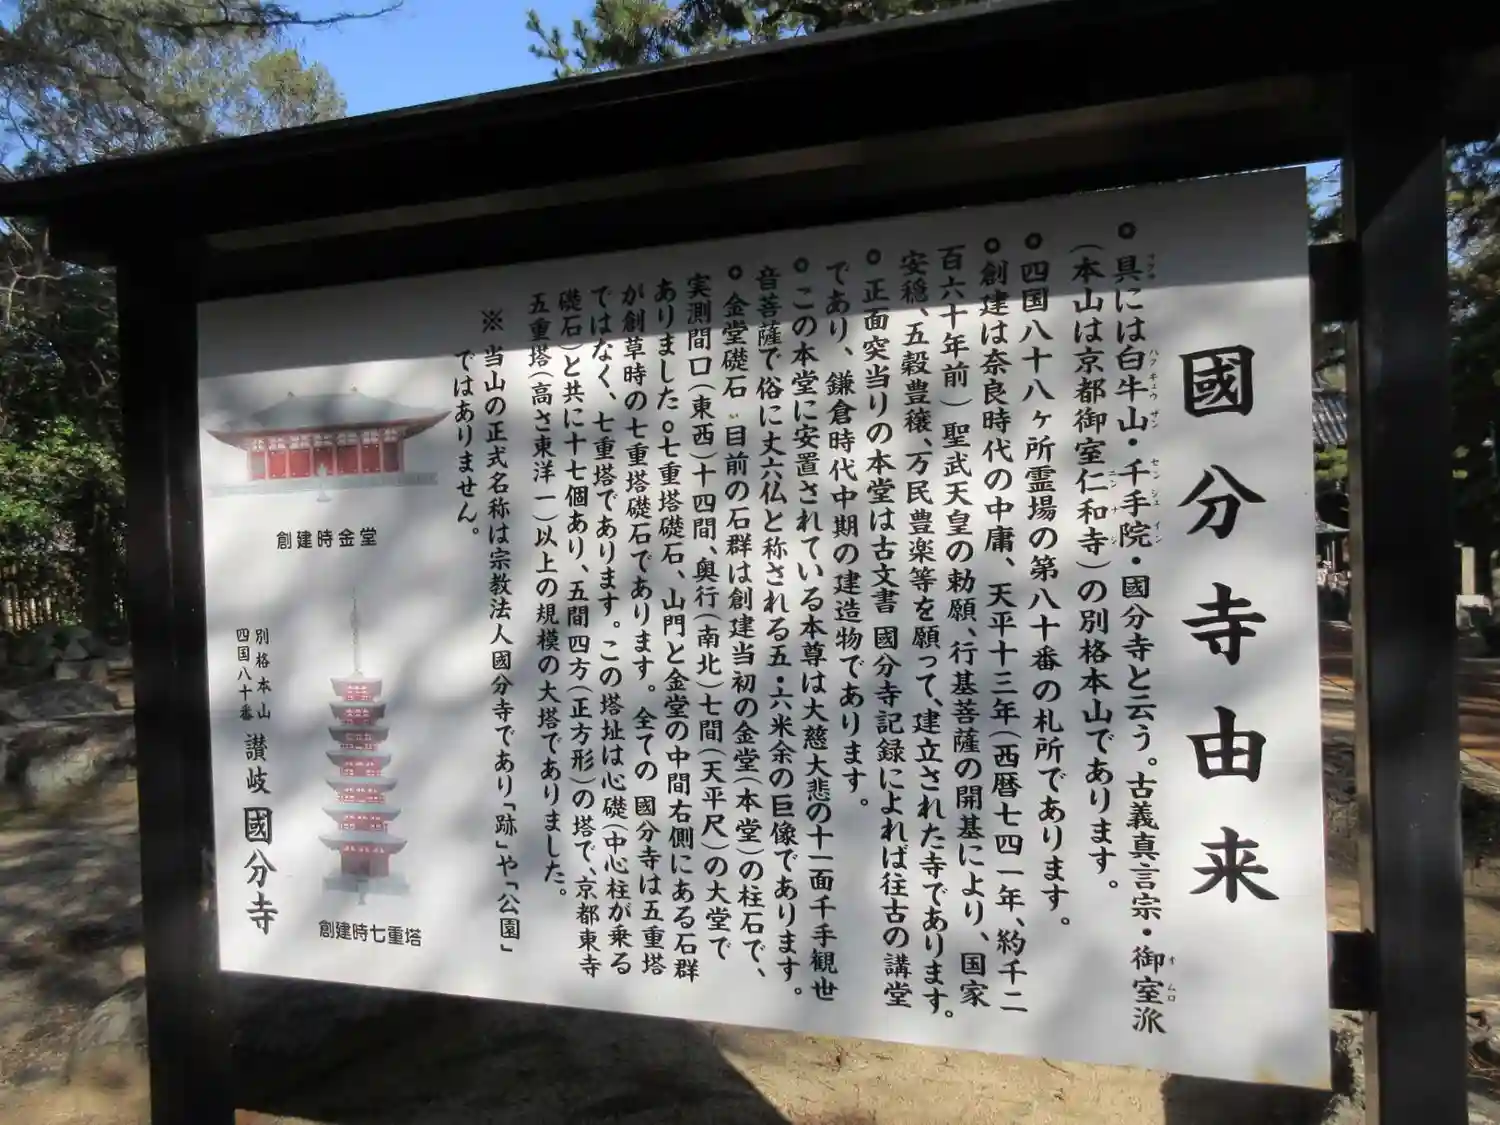 國分寺由来
⚪︎具には白牛山・千手院・國分寺と云う。古義真言宗・御室派
（本山は京都御室仁和寺）の別格本山であります。
⚪︎四国八十八ヶ所霊場の第八十番の札所であります。
⚪︎創建は奈良時代の中庸、天平十三年（西暦七四一年、約千二
百六十年前）聖武天皇の勅願、行基菩薩の開基により、国家
安穏、五穀豊穣、万民豊楽等を願って、建立された寺であります。
⚪︎正面突当りの本堂は古文書 國分寺記録によれば往古の講堂
であり、鎌倉時代中期の建造物であります。
⚪︎この本堂に安置されている本尊は大慈大悲の十一面千手観世
音菩薩で俗に丈六仏と称される五・六米余の巨像であります。
⚪︎金堂礎石 〃目前の石群は創建当初の金堂（本堂）の柱石で、
実測間口（東西）十四間、奥行（南北）七間（天平尺）の大堂で
ありました⚪︎七重塔礎石、山門と金堂の中間右側にある石群
が創草時の七重塔礎石であります。全ての 國分寺は五重塔
ではなく、七重塔であります。この塔址は心礎（中心柱が乗る
礎石）と共に十七個あり、五間四方（正方形）の塔で、京都東寺
五重塔（高さ東洋一）以上の規模の大塔でありました。
※ 当山の正式名称は宗教法人國分寺であり「跡」や「公園」
ではありません。
創建時金堂
創建時七重塔
別格本山
四国八十番
讃岐 國分寺